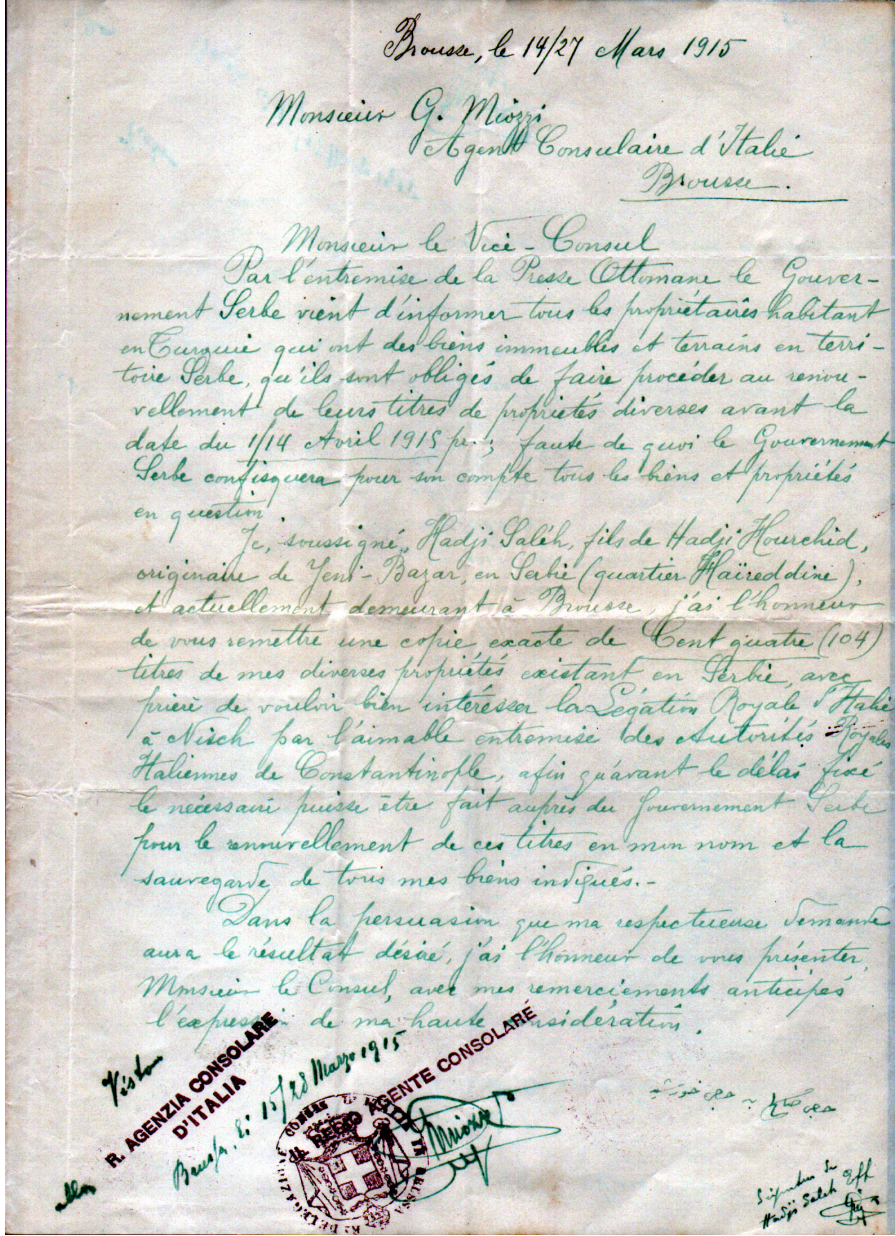 Brousse, le 14/27 Mars 1915
Monsieur G. Miozzi
Agent Consulaire d'Italie
Brousse.
Monsieur le Vice-Consul
Par l'entremise de la Presse Ottomane le Gouver-
nement Serbe vient d'informer tous les propriétaires habitant
en Turquie qui ont des biens immeubles et terrains en terri-
toire Serbe, qu'ils sont obligés de faire procéder au renou-
vellement de leurs titres de propriétés diverses avant la
date du 1/14 Avril 1915 pr.; faute de quoi le Gouvernement
Serbe confisquera pour son compte tous les biens et propriétés
en question
Je, soussigné, Hadji Saléh, fils de Hadji Hourchid,
originaire de Yeni-Bazar, en Serbie (quartier Haïreddine),
et actuellement demeurant à Brousse, j'ai l'honneur
de vous remettre une copie exacte de Cent quatre (104)
titres de mes diverses propriétés existant en Serbie, avec
prière de vouloir bien intéresser la Légation Royale d'Italie
à Nisch par l'aimable entremise des Autorités Royales
Italiennes de Constantinople, afin qu'avant le délai fixé
le nécessaire puisse être fait auprès du Gouvernement Serbe
pour le renouvellement de ces titres en mon nom et la
sauvegarde de tous mes biens indiqués.-
Dans la persuasion que ma respectueuse demande
aura le résultat désiré, j'ai l'honneur de vous présenter,
Monsieur le Consul, avec mes remerciements anticipés
l'expression de ma haute considération.
Visto
R. AGENZIA CONSOLARE
D'ITALIA
Brussa, li 15/28 Marzo 1915
IL REGIO AGENTE CONSOLARE
Miozzi
Hadji Saleh